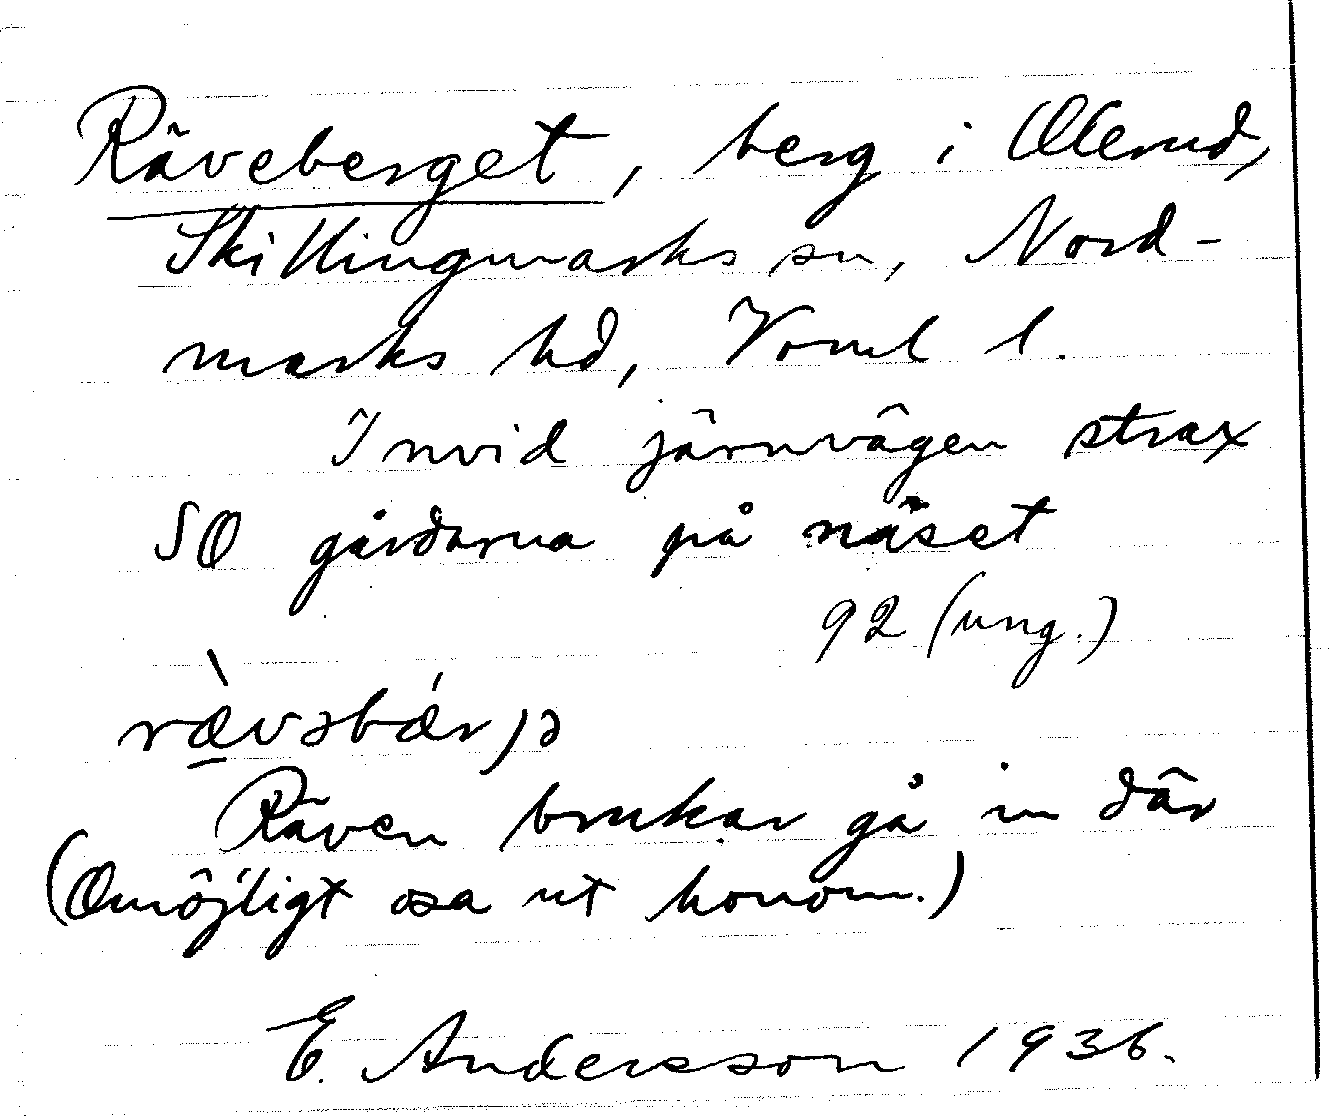 Räveberget, berg i Ölerud,
Skillingmarks sn, Nord-
marks hd, Verml l.
Invid järnvägen strax
SO gårdarna på näset
92 (ung.)
ræ̀vəbǽrjə
Räven brukar gå in där
(Omöjligt osa ut honom.)
E. Andersson 1936.